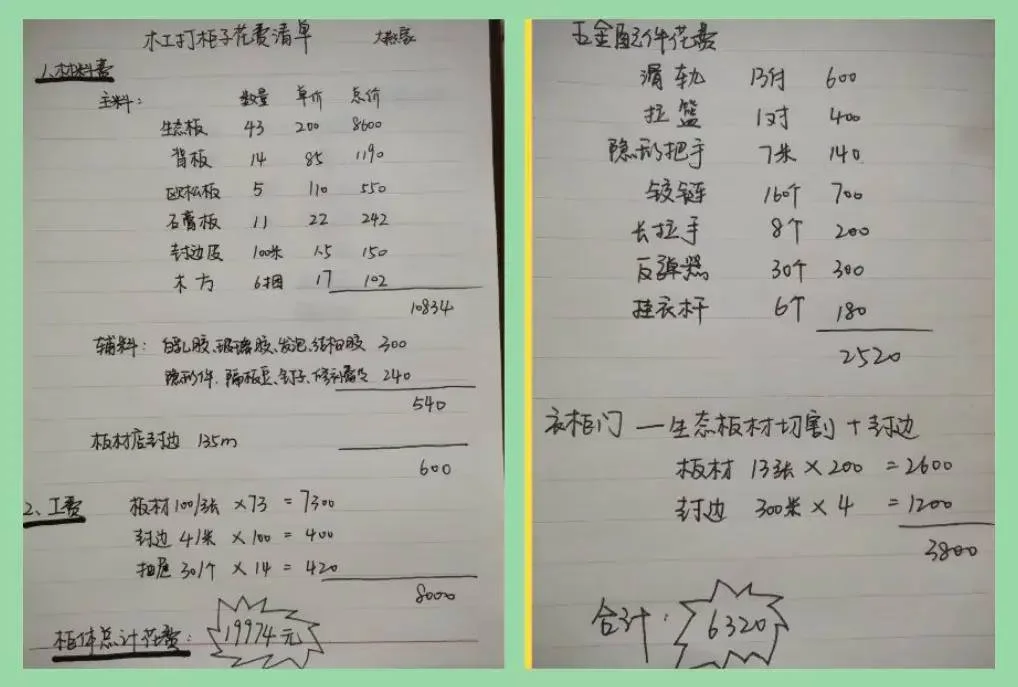 木工打柜子花费清单
1.材料费
主料: 数量 单价 总价
生态板 43 200 8600
背板 14 85 1190
欧松板 5 110 550
石膏板 11 22 242
封边皮 100米 1.5 150
木方 6捆 17 102
10834
辅料: 白乳胶、玻璃胶、发泡、结构胶 300
隐形件、隔板豆、钉子、修补膏 240
540
板材店封边 135m
600
2、工费 板材100/张 ×73 = 7300
封边 4/米 ×100 = 400
抽屉 30/个 ×14 = 420
8000
柜体总计花费: 19974元
五金配件花费
滑轨 13付 600
拉篮 1对 400
隐形把手 7米 140
铰链 160个 700
长拉手 8个 200
反弹器 30个 300
挂衣杆 6个 180
2520
衣柜门 — 生态板材切割+封边
板材 13张×200 =2600
封边 300米×4 =1200
3800
合计: 6320